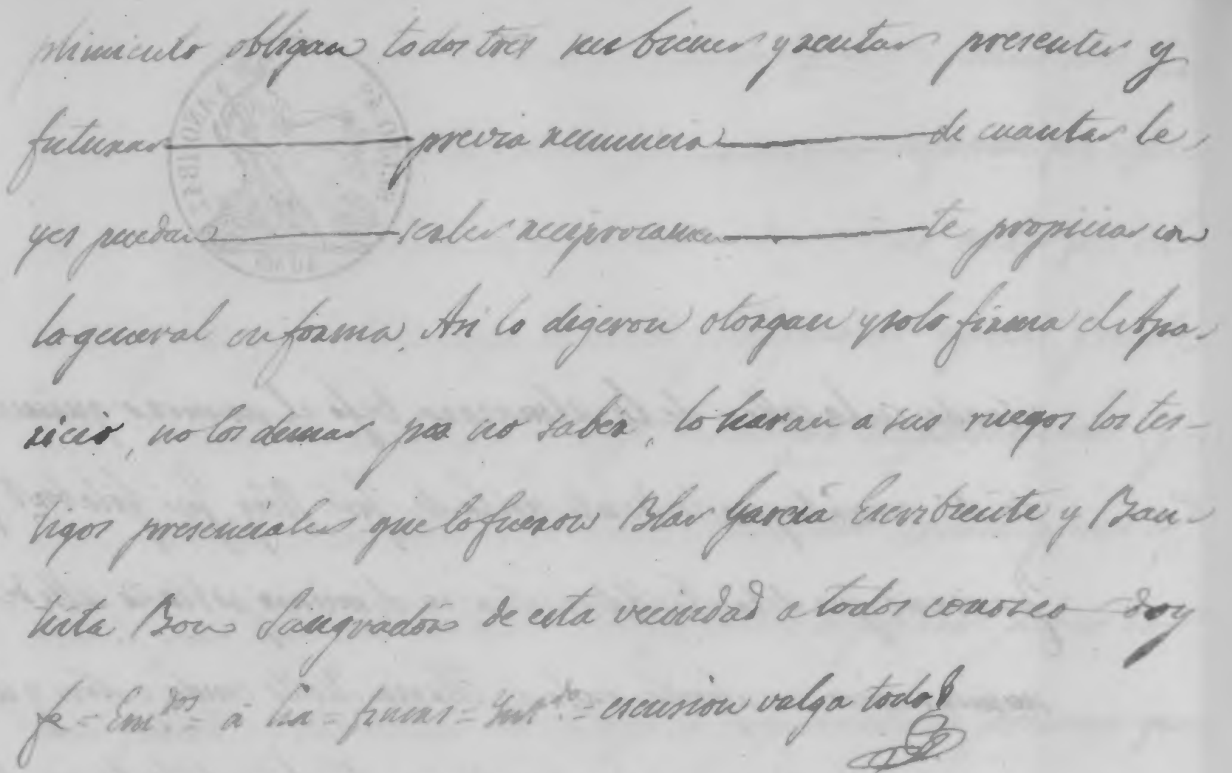 plimiento obligan todos tres sus bienes y rentas presentes y
futuras previa renuncia de cuantas le,
yes puedan serles reciprocamen te propicias con
la general en forma. Asi lo digeron otorgan y solo firma el Apa-
ricio, no los demas por no saber, lo haran a sus ruegos los tes-
tigos presenciales que lo fueron Blas García Escribiente y Bau-
tista Bou Sangrador de esta vecindad a todos conosco doy
fe = Em.dos = a = fincas = Ent.do = escusion valga todo